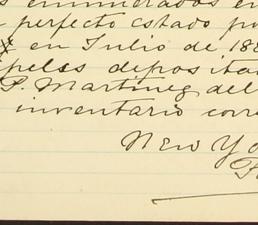 s enumerados en
perfecto estado po
en Julio de 188
peles deposita
P. Martinez del
inventario corr
New Yo